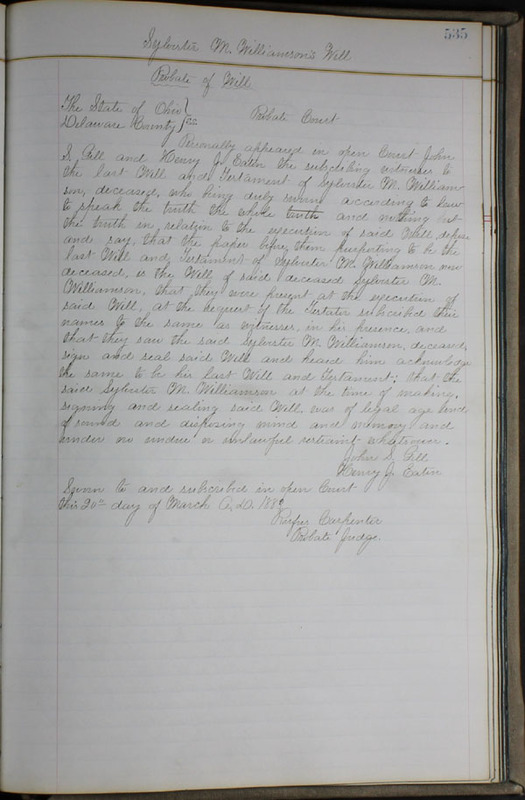 535
Sylvester M. Williamson's Will
Probate of Will
The State of Ohio }
Delaware County } ss. Probate Court
Personally appeared in open Court John
S. Gill and Henry J. Eaton the subscribing witnesses to
the last Will and Testament of Sylvester M. William-
son, deceased, who being duly sworn according to law
to speak the truth the whole truth and nothing but
the truth in relation to the execution of said Will, depose
and say, that the paper before them purporting to be the
last Will and Testament of Sylvester M. Williamson now
deceased, is the Will of said deceased Sylvester M.
Williamson, that they were present at the execution of
said Will, at the request of the Testator subscribed their
names to the same as witnesses, in his presence, and
that they saw the said Sylvester M. Williamson, deceased,
sign and seal said Will and heard him acknowledge
the same to be his last Will and Testament; that the
said Sylvester M. Williamson at the time of making,
signing and sealing said Will, was of legal age and
of sound and disposing mind and memory and
under no undue or unlawful restraint whatsoever.
John S. Gill
Henry J. Eaton
Sworn to and subscribed in open Court
this 20th day of March A.D. 188
Rufus Carpenter
Probate Judge.